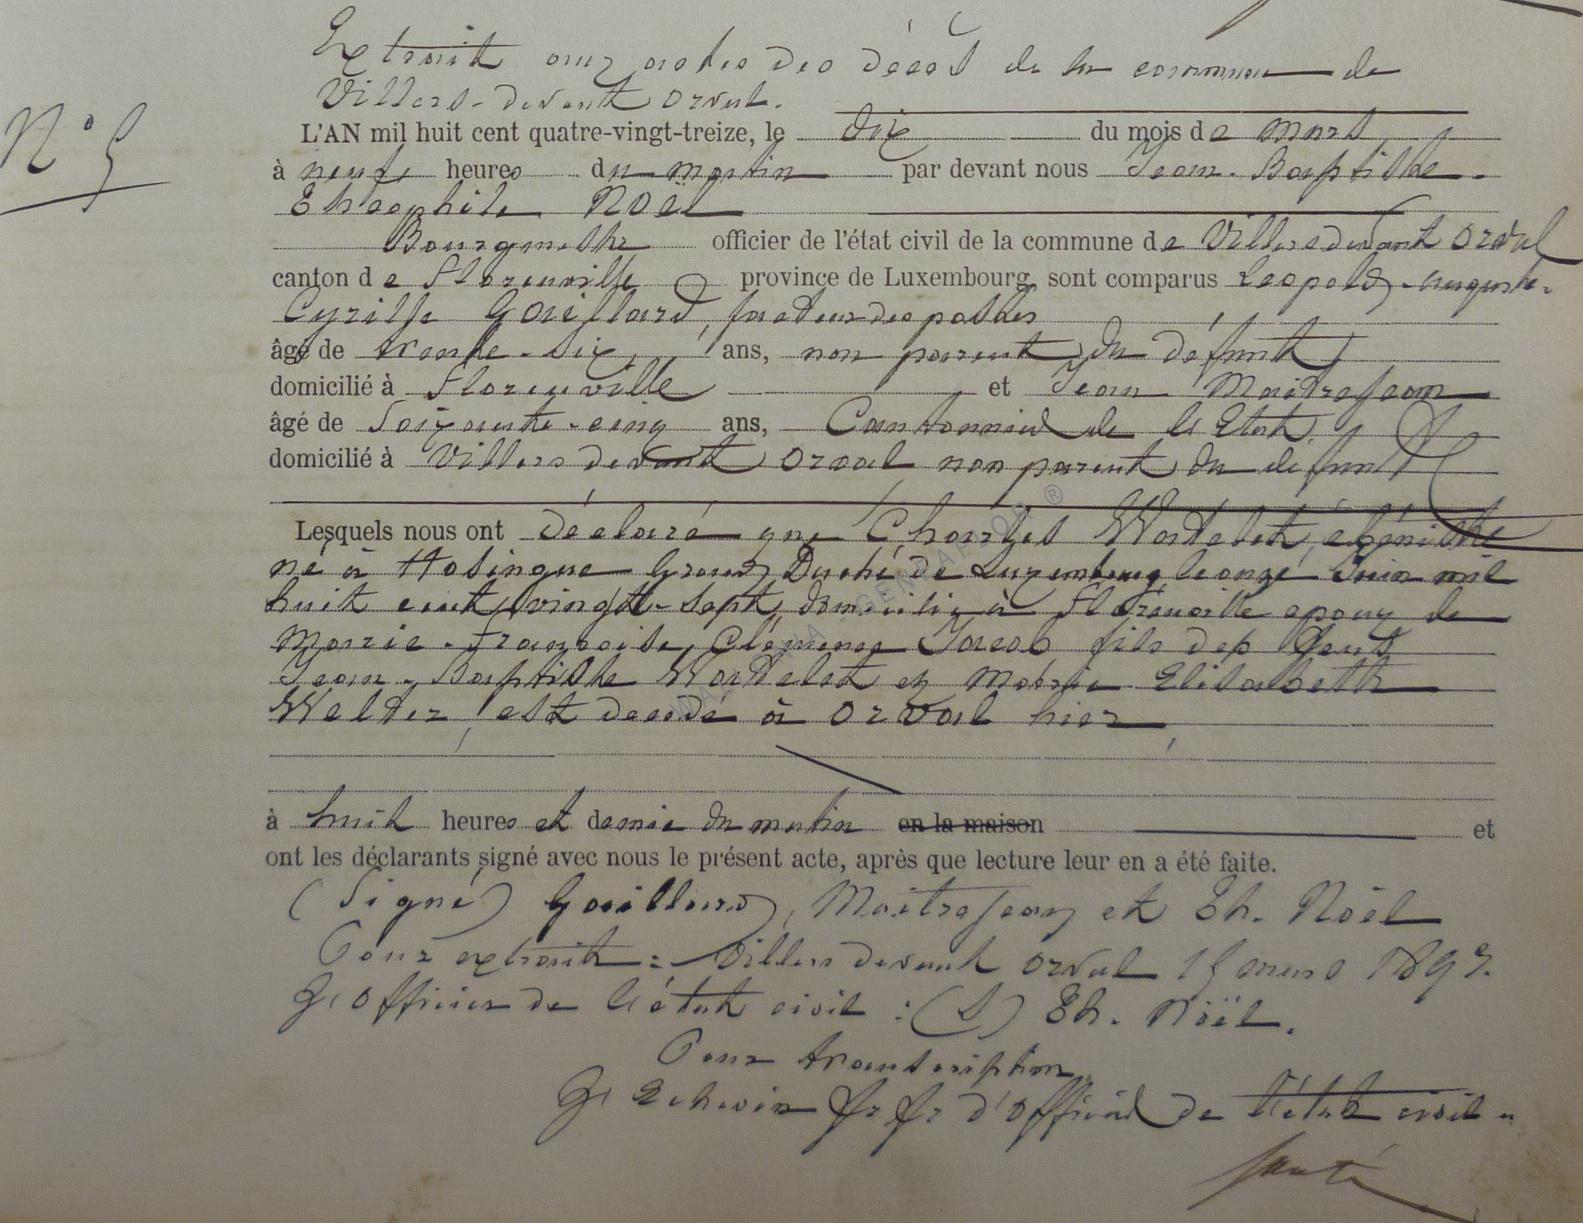 Extrait aux actes des décès de la commune de
Villers-devant Orval.
N° 5
L'AN mil huit cent quatre-vingt-treize, le dix du mois de mars
à neuf heures du matin par devant nous Jean-Baptiste-
Théophile Noël
Bourgmestre officier de l'état civil de la commune de Villers devant Orval
canton de Florenville province de Luxembourg, sont comparus Léopold-Auguste-
Cyrille Gaillard, facteur des postes
âgé de trente-six, ans, non parent du défunt
domicilié à Florenville et Jean Maitrejean
âgé de Soixante-cinq ans, Cantonnier de l'Etat
domicilié à Villers devant Orval non parent du défunt
Lesquels nous ont déclaré que Charles Watelet, ébéniste
né à Hosingue Grand Duché de Luxembourg le onze Juin mil
huit cent vingt-sept, domicilié à Florenville epoux de
Marie-Françoise, Clémence Jacob fils des feus
Jean-Baptiste Watelet et Marie Elisabeth
Welter, est décédé à Orval hier
à huit heures et demie du matin en la maison et
ont les déclarants signé avec nous le présent acte, après que lecture leur en a été faite.
(Signé) Gaillard, Maitrejean et Th. Noël
Pour extrait: Villers devant Orval 15 mars 1893.
L'Officier de l'état civil: (S) Th. Noël.
Pour transcription
L'Echevin ff d'officier de l'état civil